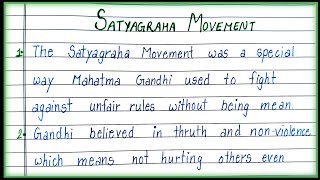 SATYAGRAHA MOVEMENT
1- The Satyagraha Movement was a special
way Mahatma Gandhi used to fight
against unfair rules without being mean.
2- Gandhi believed in thruth and non-violence
which means not hurting others even